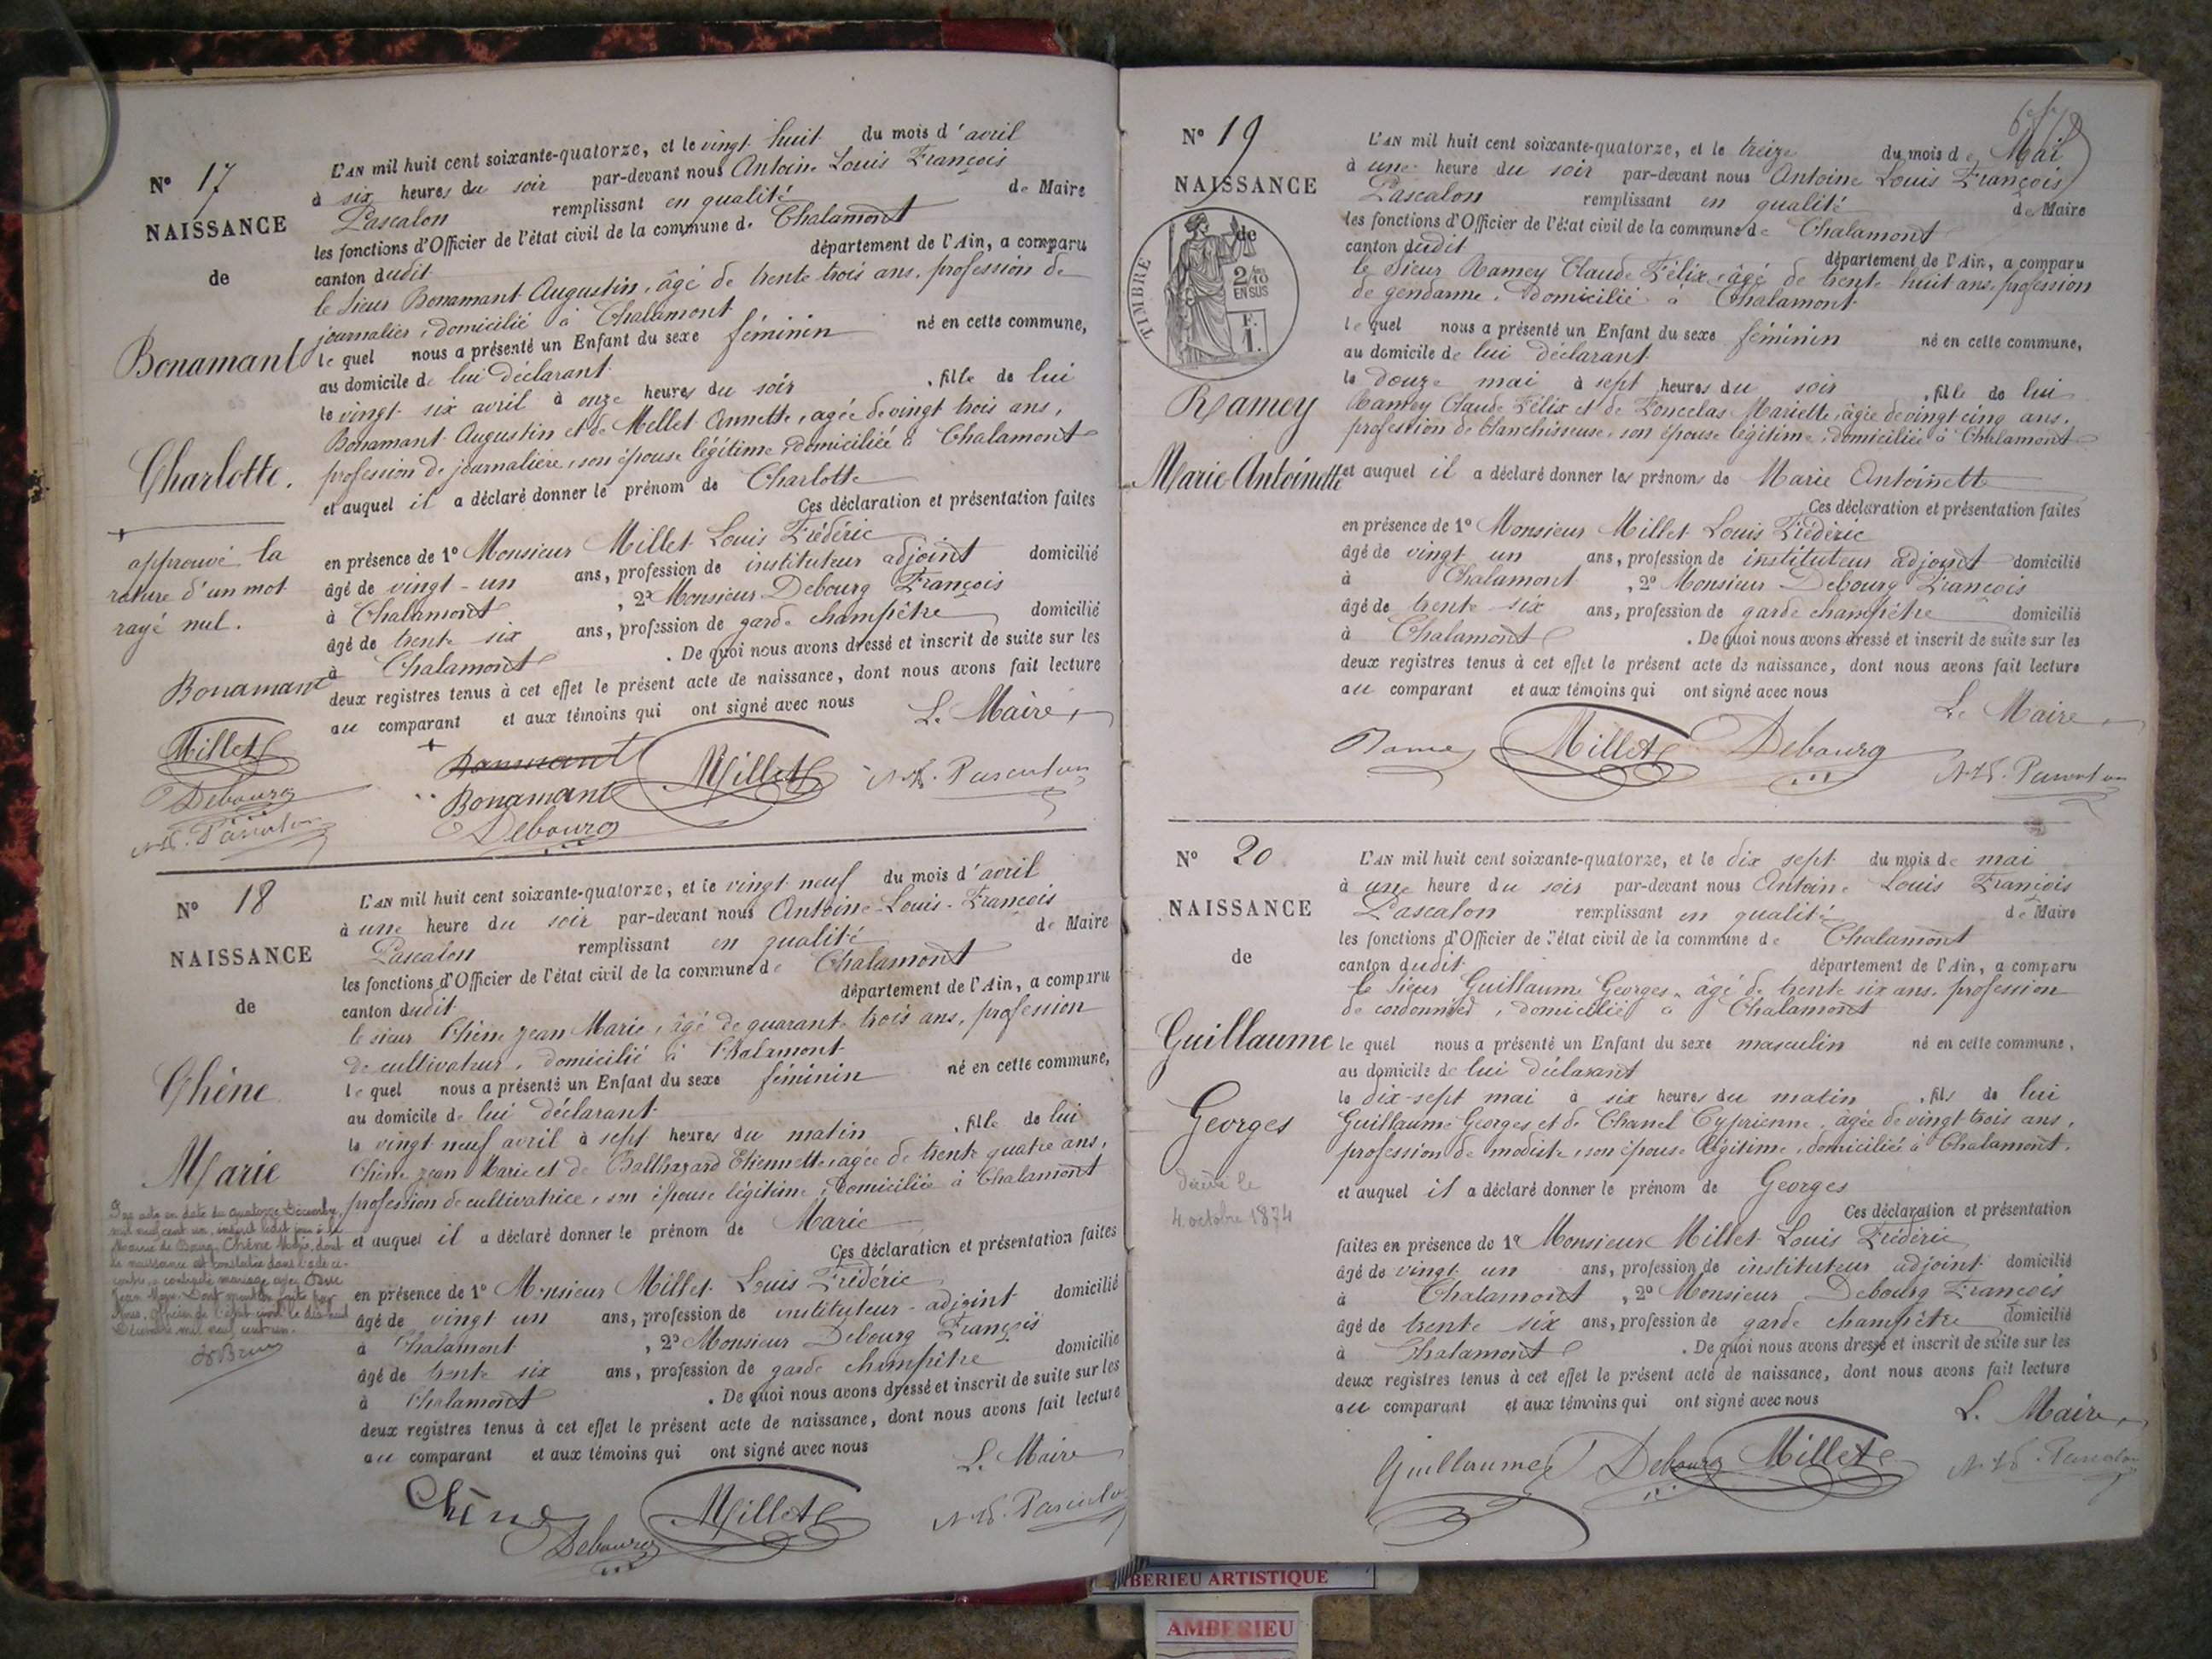 N° 17
NAISSANCE
de
Bonamant
Charlotte.
approuvé la
rature d'un mot
rayé nul.
Bonamant
Millet
Debourg
L'AN mil huit cent soixante-quatorze, et le vingt huit du mois d'avril
à six heures du soir par-devant nous Antoine Louis François
Pascalon remplissant en qualité de Maire
les fonctions d'Officier de l'état civil de la commune de Chalamont
canton dudit département de l'Ain, a comparu
le sieur Bonamant Augustin, âgé de trente trois ans, profession de
journalier, domicilié à Chalamont
lequel nous a présenté un Enfant du sexe féminin né en cette commune,
au domicile de lui déclarant
le vingt-six avril à onze heures du soir , fille de lui
Bonamant Augustin et de Mellet Annette, agée de vingt trois ans,
profession de journalière, son épouse légitime, domiciliée à Chalamont
et auquel il a déclaré donner le prénom de Charlotte
Ces déclaration et présentation faites
en présence de 1° Monsieur Millet Louis Frédéric
âgé de vingt-un ans, profession de instituteur adjoint domicilié
à Chalamont , 2° Monsieur Debourg François
âgé de trente six ans, profession de garde champêtre domicilié
à Chalamont . De quoi nous avons dressé et inscrit de suite sur les
deux registres tenus à cet effet le présent acte de naissance, dont nous avons fait lecture
au comparant et aux témoins qui ont signé avec nous
Le Maire,
Bonamant
Bonamant Millet
Debourg
N° 18
NAISSANCE
de
Chêne
Marie
Par acte en date du quatorze Décembre,
mil neuf cent un, inscrit ledit jour à la
Mairie de Bourg, Chêne Marie, dont
la naissance est constatée dans l'acte ci-
contre, a contracté mariage avec
Jean Marie. Dont mention faite par
Nous, officier de l'état civil le dix-huit
Décembre mil neuf cent un.
L'AN mil huit cent soixante-quatorze, et le vingt neuf du mois d'avril
à une heure du soir par-devant nous Antoine-Louis-François
Pascalon remplissant en qualité de Maire
les fonctions d'Officier de l'état civil de la commune de Chalamont
canton dudit département de l'Ain, a comparu
le sieur Chêne Jean Marie, âgé de quarante trois ans, profession
de cultivateur, domicilié à Chalamont
lequel nous a présenté un Enfant du sexe féminin né en cette commune,
au domicile de lui déclarant
le vingt neuf avril à sept heures du matin , fille de lui
Chêne Jean Marie et de Balthazard Etiennette, agée de trente quatre ans,
profession de cultivatrice, son épouse légitime, domiciliée à Chalamont
et auquel il a déclaré donner le prénom de Marie
Ces déclaration et présentation faites
en présence de 1° Monsieur Millet Louis Frédéric
âgé de vingt un ans, profession de instituteur-adjoint domicilié
à Chalamont , 2° Monsieur Debourg François
âgé de trente six ans, profession de garde champêtre domicilié
à Chalamont . De quoi nous avons dressé et inscrit de suite sur les
deux registres tenus à cet effet le présent acte de naissance, dont nous avons fait lecture
au comparant et aux témoins qui ont signé avec nous
Le Maire
Chêne Millet
Debourg
N° 19
NAISSANCE
de
TIMBRE
2/10
EN SUS
F.
1.
Ramey
Marie Antoinette
L'AN mil huit cent soixante-quatorze, et le treize du mois de Mai
à une heure du soir par-devant nous Antoine Louis François
Pascalon remplissant en qualité de Maire
les fonctions d'Officier de l'état civil de la commune de Chalamont
canton dudit département de l'Ain, a comparu
le Sieur Ramey Claude Félix, âgé de trente huit ans, profession
de gendarme, domicilié à Chalamont
lequel nous a présenté un Enfant du sexe féminin né en cette commune,
au domicile de lui déclarant
le douze mai à sept heures du soir , fille de lui
Ramey Claude Félix et de Poncelas Mariette, âgée de vingt-cinq ans,
profession de blanchisseuse, son épouse légitime, domiciliée à Chalamont
et auquel il a déclaré donner les prénoms de Marie Antoinette
Ces déclaration et présentation faites
en présence de 1° Monsieur Millet Louis Frédéric
âgé de vingt un ans, profession de instituteur adjoint domicilié
à Chalamont , 2° Monsieur Debourg François
âgé de trente six ans, profession de garde champêtre domicilié
à Chalamont . De quoi nous avons dressé et inscrit de suite sur les
deux registres tenus à cet effet le présent acte de naissance, dont nous avons fait lecture
au comparant et aux témoins qui ont signé avec nous
Le Maire,
Ramey Millet Debourg
N° 20
NAISSANCE
de
Guillaume
Georges
décédé le
4 octobre 1874
L'AN mil huit cent soixante-quatorze, et le dix sept du mois de mai
à une heure du soir par-devant nous Antoine Louis François
Pascalon remplissant en qualité de Maire
les fonctions d'Officier de l'état civil de la commune de Chalamont
canton dudit département de l'Ain, a comparu
le Sieur Guillaume Georges, âgé de trente six ans, profession
de cordonnier, domicilié à Chalamont
lequel nous a présenté un Enfant du sexe masculin né en cette commune,
au domicile de lui déclarant
le dix-sept mai à six heures du matin , fils de lui
Guillaume Georges et de Chanel Cyprienne, âgée de vingt-trois ans,
profession de modiste, son épouse légitime, domiciliée à Chalamont.
et auquel il a déclaré donner le prénom de Georges
Ces déclaration et présentation
faites en présence de 1° Monsieur Millet Louis Frédéric
âgé de vingt un ans, profession de instituteur adjoint domicilié
à Chalamont , 2° Monsieur Debourg François
âgé de trente six ans, profession de garde champêtre domicilié
à Chalamont . De quoi nous avons dressé et inscrit de suite sur les
deux registres tenus à cet effet le présent acte de naissance, dont nous avons fait lecture
au comparant et aux témoins qui ont signé avec nous
Le Maire,
Guillaume Debourg Millet
BERIEU ARTISTIQUE
AMBERIEU